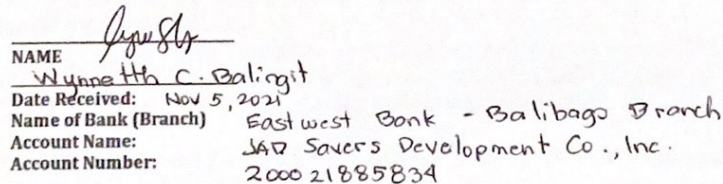 NAME
Wynnetth C. Balingit
Date Received: Nov 5, 2021
Name of Bank (Branch) Eastwest Bank - Balibago Branch
Account Name: JAD Savers Development Co., Inc.
Account Number: 200021885834